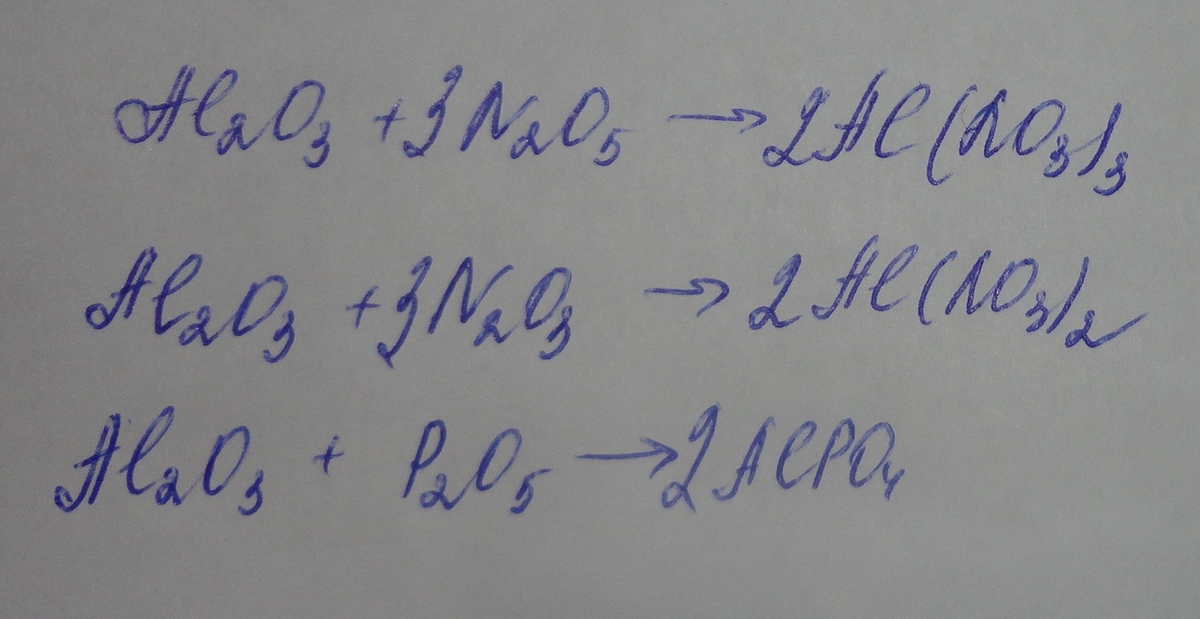 Al₂O₃ + 3N₂O₅ → 2Al(NO₃)₃
Al₂O₃ + 3N₂O₃ → 2Al(NO₃)₂
Al₂O₃ + P₂O₅ → 2AlPO₄